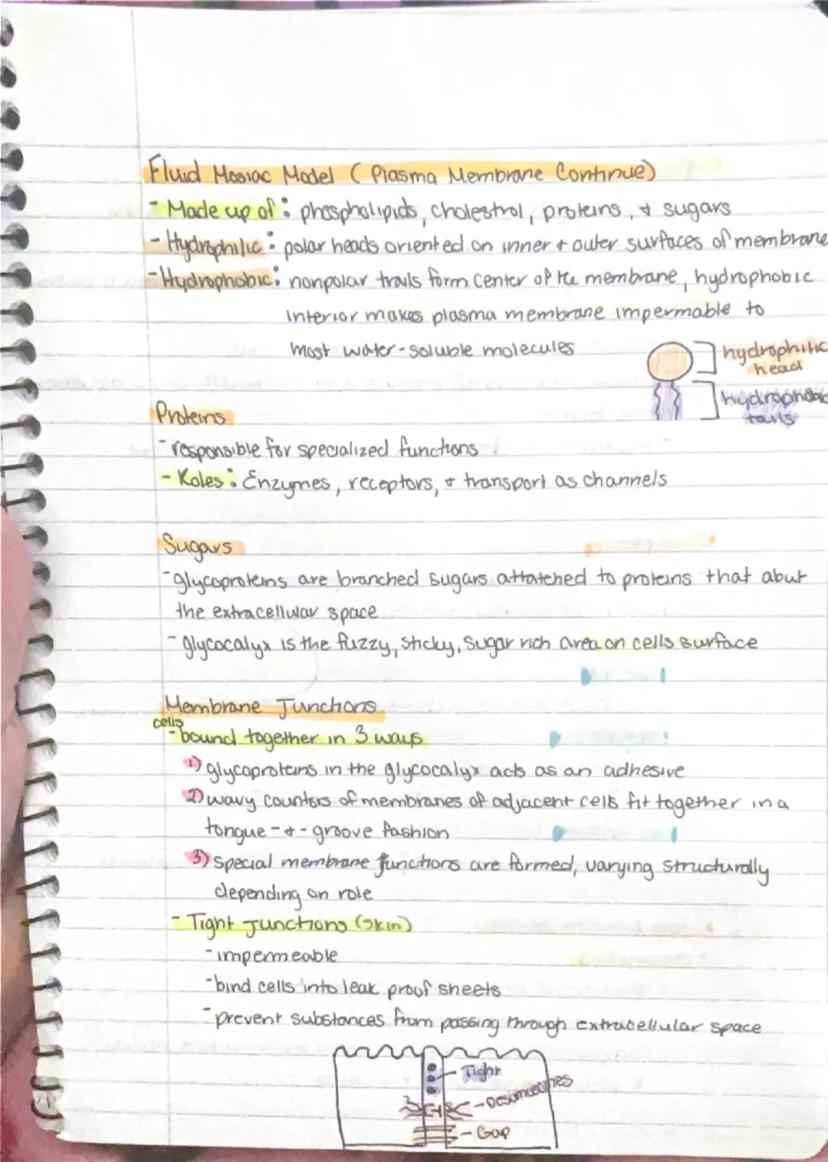 Fluid Mosiac Model ( Plasma Membrane Continue)
- Made up of: phospholipids, cholestrol, proteins, & sugars
- Hydrophilic: polar heads oriented on inner & outer surfaces of membrane
- Hydrophobic: nonpolar trails form center of the membrane, hydrophobic
interior makes plasma membrane impermable to
most water-soluble molecules
hydrophilic
head
hydrophobic
tails
Proteins
- responsible for specialized functions
- Roles: Enzymes, receptors, & transport as channels
Sugars
- glycoproteins are branched sugars attatched to proteins that abut
the extracellular space
- glycocalyx is the fuzzy, sticky, sugar rich area on cells surface
Membrane Junctions
cells
- bound together in 3 ways
1) glycoproteins in the glycocalyx acts as an adhesive
2) wavy counters of membranes of adjacent cells fit together in a
tongue-&-groove fashion
3) special membrane junctions are formed, varying structurally
depending on role
- Tight Junctions (skin)
- impermeable
- bind cells into leak proof sheets
- prevent substances from passing through extracellular space
- Tight
- Desmosomes
- Gap